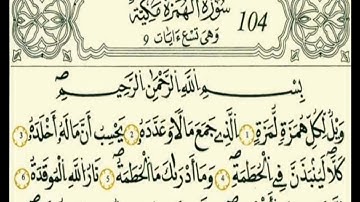 سُورَةُ الْهُمَزَةِ مَكِّيَّة
104
وَهِيَ تِسْعُ ءَايَاتٍ 9
بِسْمِ اللَّهِ الرَّحْمَٰنِ الرَّحِيمِ
وَيْلٌ لِّكُلِّ هُمَزَةٍ لُّمَزَةٍ 1 الَّذِي جَمَعَ مَالًا وَعَدَّدَهُ 2 يَحْسِبُ أَنَّ مَالَهُ أَخْلَدَهُ 3
كَلَّا لَيُنبَذَنَّ فِي الْحُطَمَةِ 4 وَمَا أَدْرَىٰكَ مَا الْحُطَمَةُ 5 نَارُ اللَّهِ الْمُوقَدَةُ 6